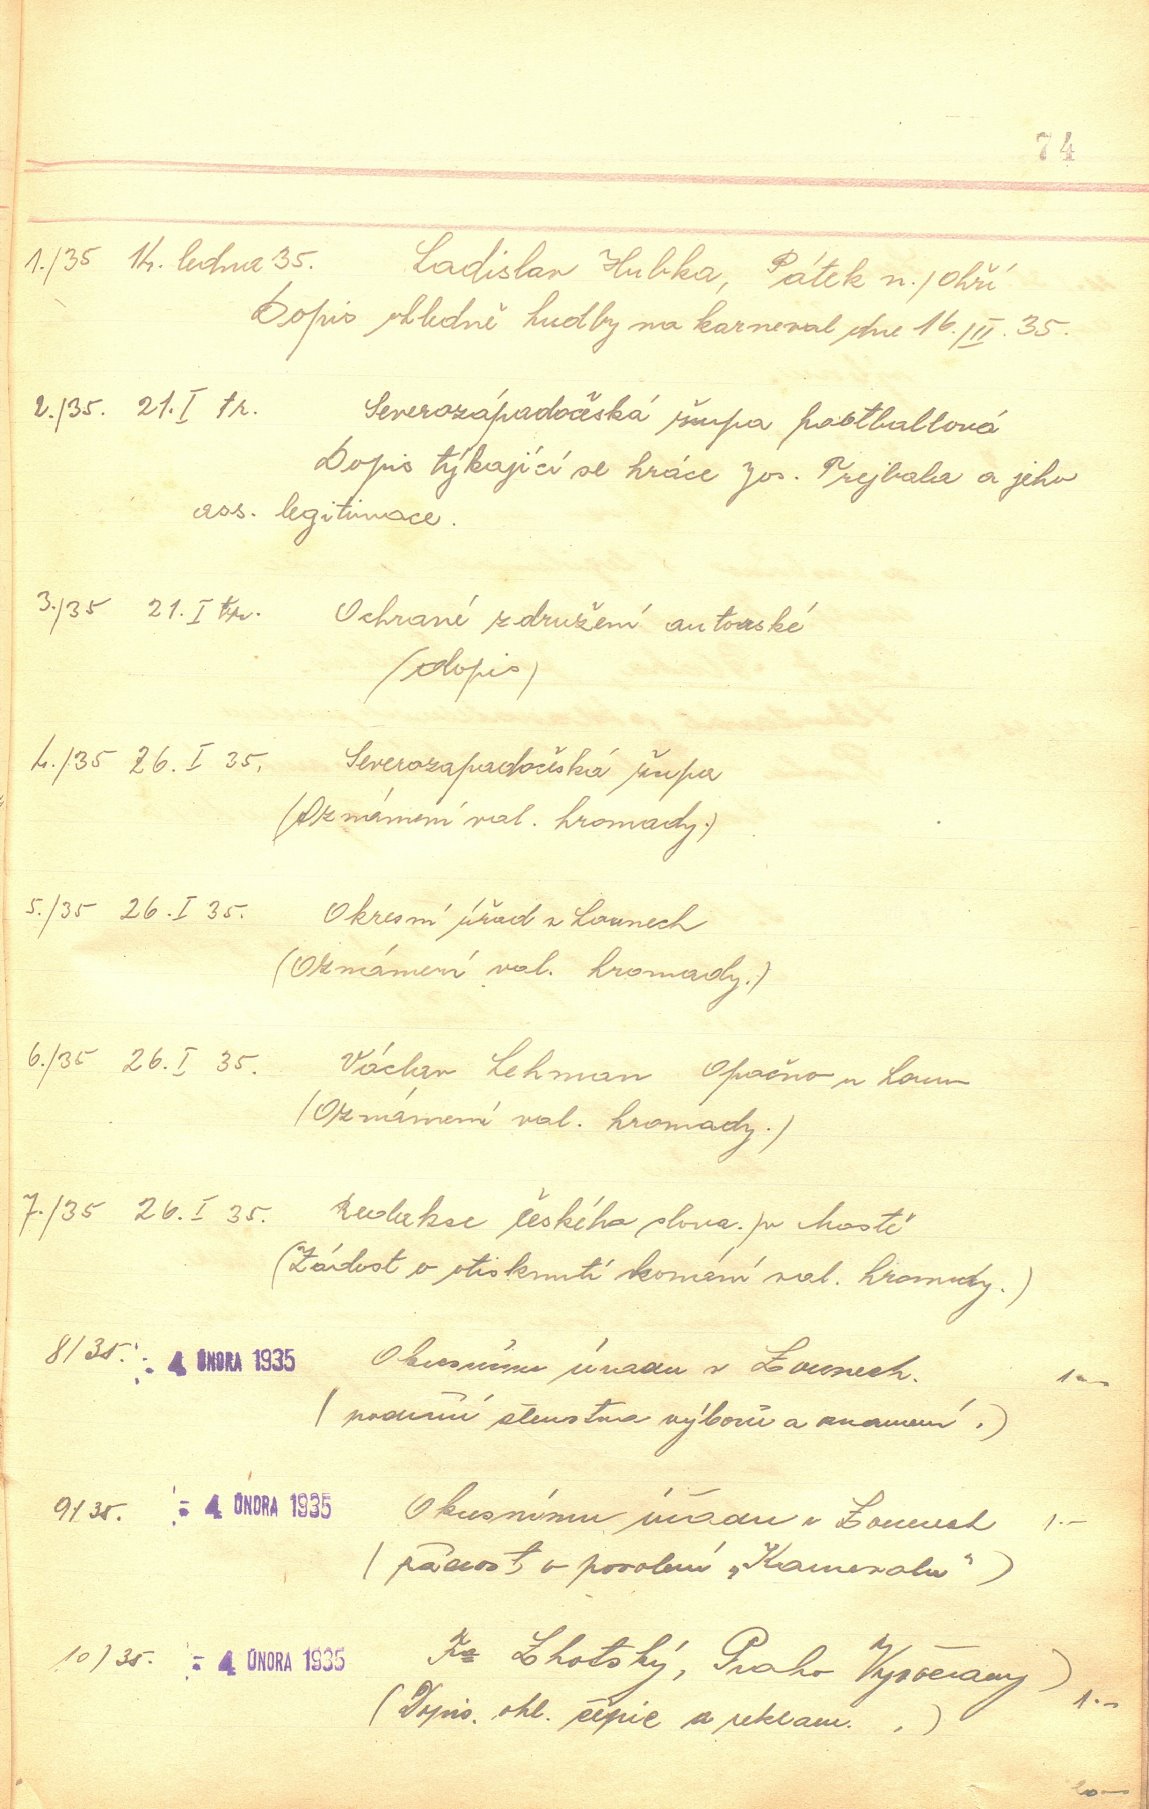 74
1./35 14. ledna 35. Ladislav Hubka, Pátek n./Ohří
Dopis ohledně hudby na karneval dne 16./III. 35.
2./35. 21. I tr. Severozápadočeská župa footballová
Dopis týkající se hráce Jos. Trejbala a jeho
ass. legitimace.
3./35 21. I tr. Ochrané združení autorské
(dopis)
4./35 26. I 35. Severozapadočeská župa
(Oznámení val. hromady.)
5./35 26. I 35. Okresní úřad v Lounech
(Oznámení val. hromady.)
6./35 26. I 35. Václav Lehman Opočno u Loun
(Oznámení val. hromady.)
7./35 26. I 35. Redakce českého slova. /v Mostě
(Žádost o otisknutí konání val. hromady.)
8/35. - 4 ÚNORA 1935 Okresnímu úřadu v Lounech. 1.-
( členstva výboru a .)
9/35. - 4 ÚNORA 1935 Okresnímu úřadu v Lounech 1.-
(žádost o povolení „Karnevalu“)
10/35. - 4 ÚNORA 1935 Lhotský, Praha Vysočany)
(Dopis. ohl. čepic a reklam. .) 1.-